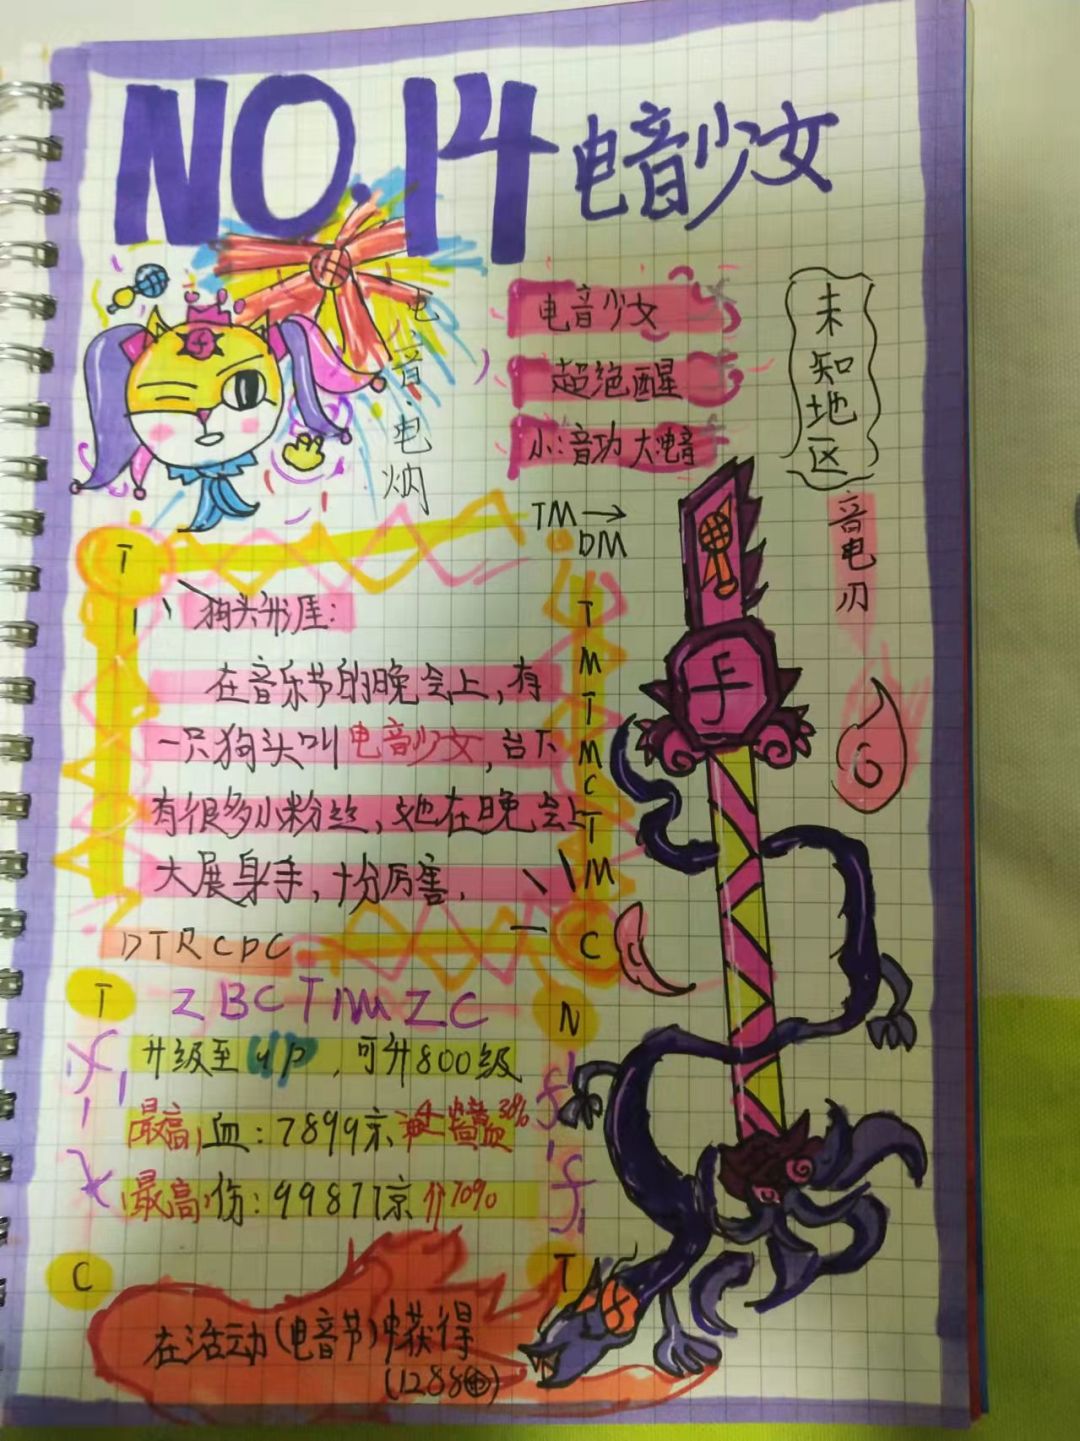 NO.14 电音少女
电音少女
超绝醒
未知地区
电音电
TM→
DM
音电刃
卡
T
狗头形涯:
在音乐节的晚会上,有
一只狗头叫电音少女,台下
有很多小粉丝,她在晚会上
大展身手,十分厉害.
T
M
T
M
C
T
M
C
DTRCDC
T
ZBCTMZC
N
升级至up,可升800级
最高血:7899京
38%
最高伤:99877京 70%
C
T
在活动(电音节)中获得
(1288)